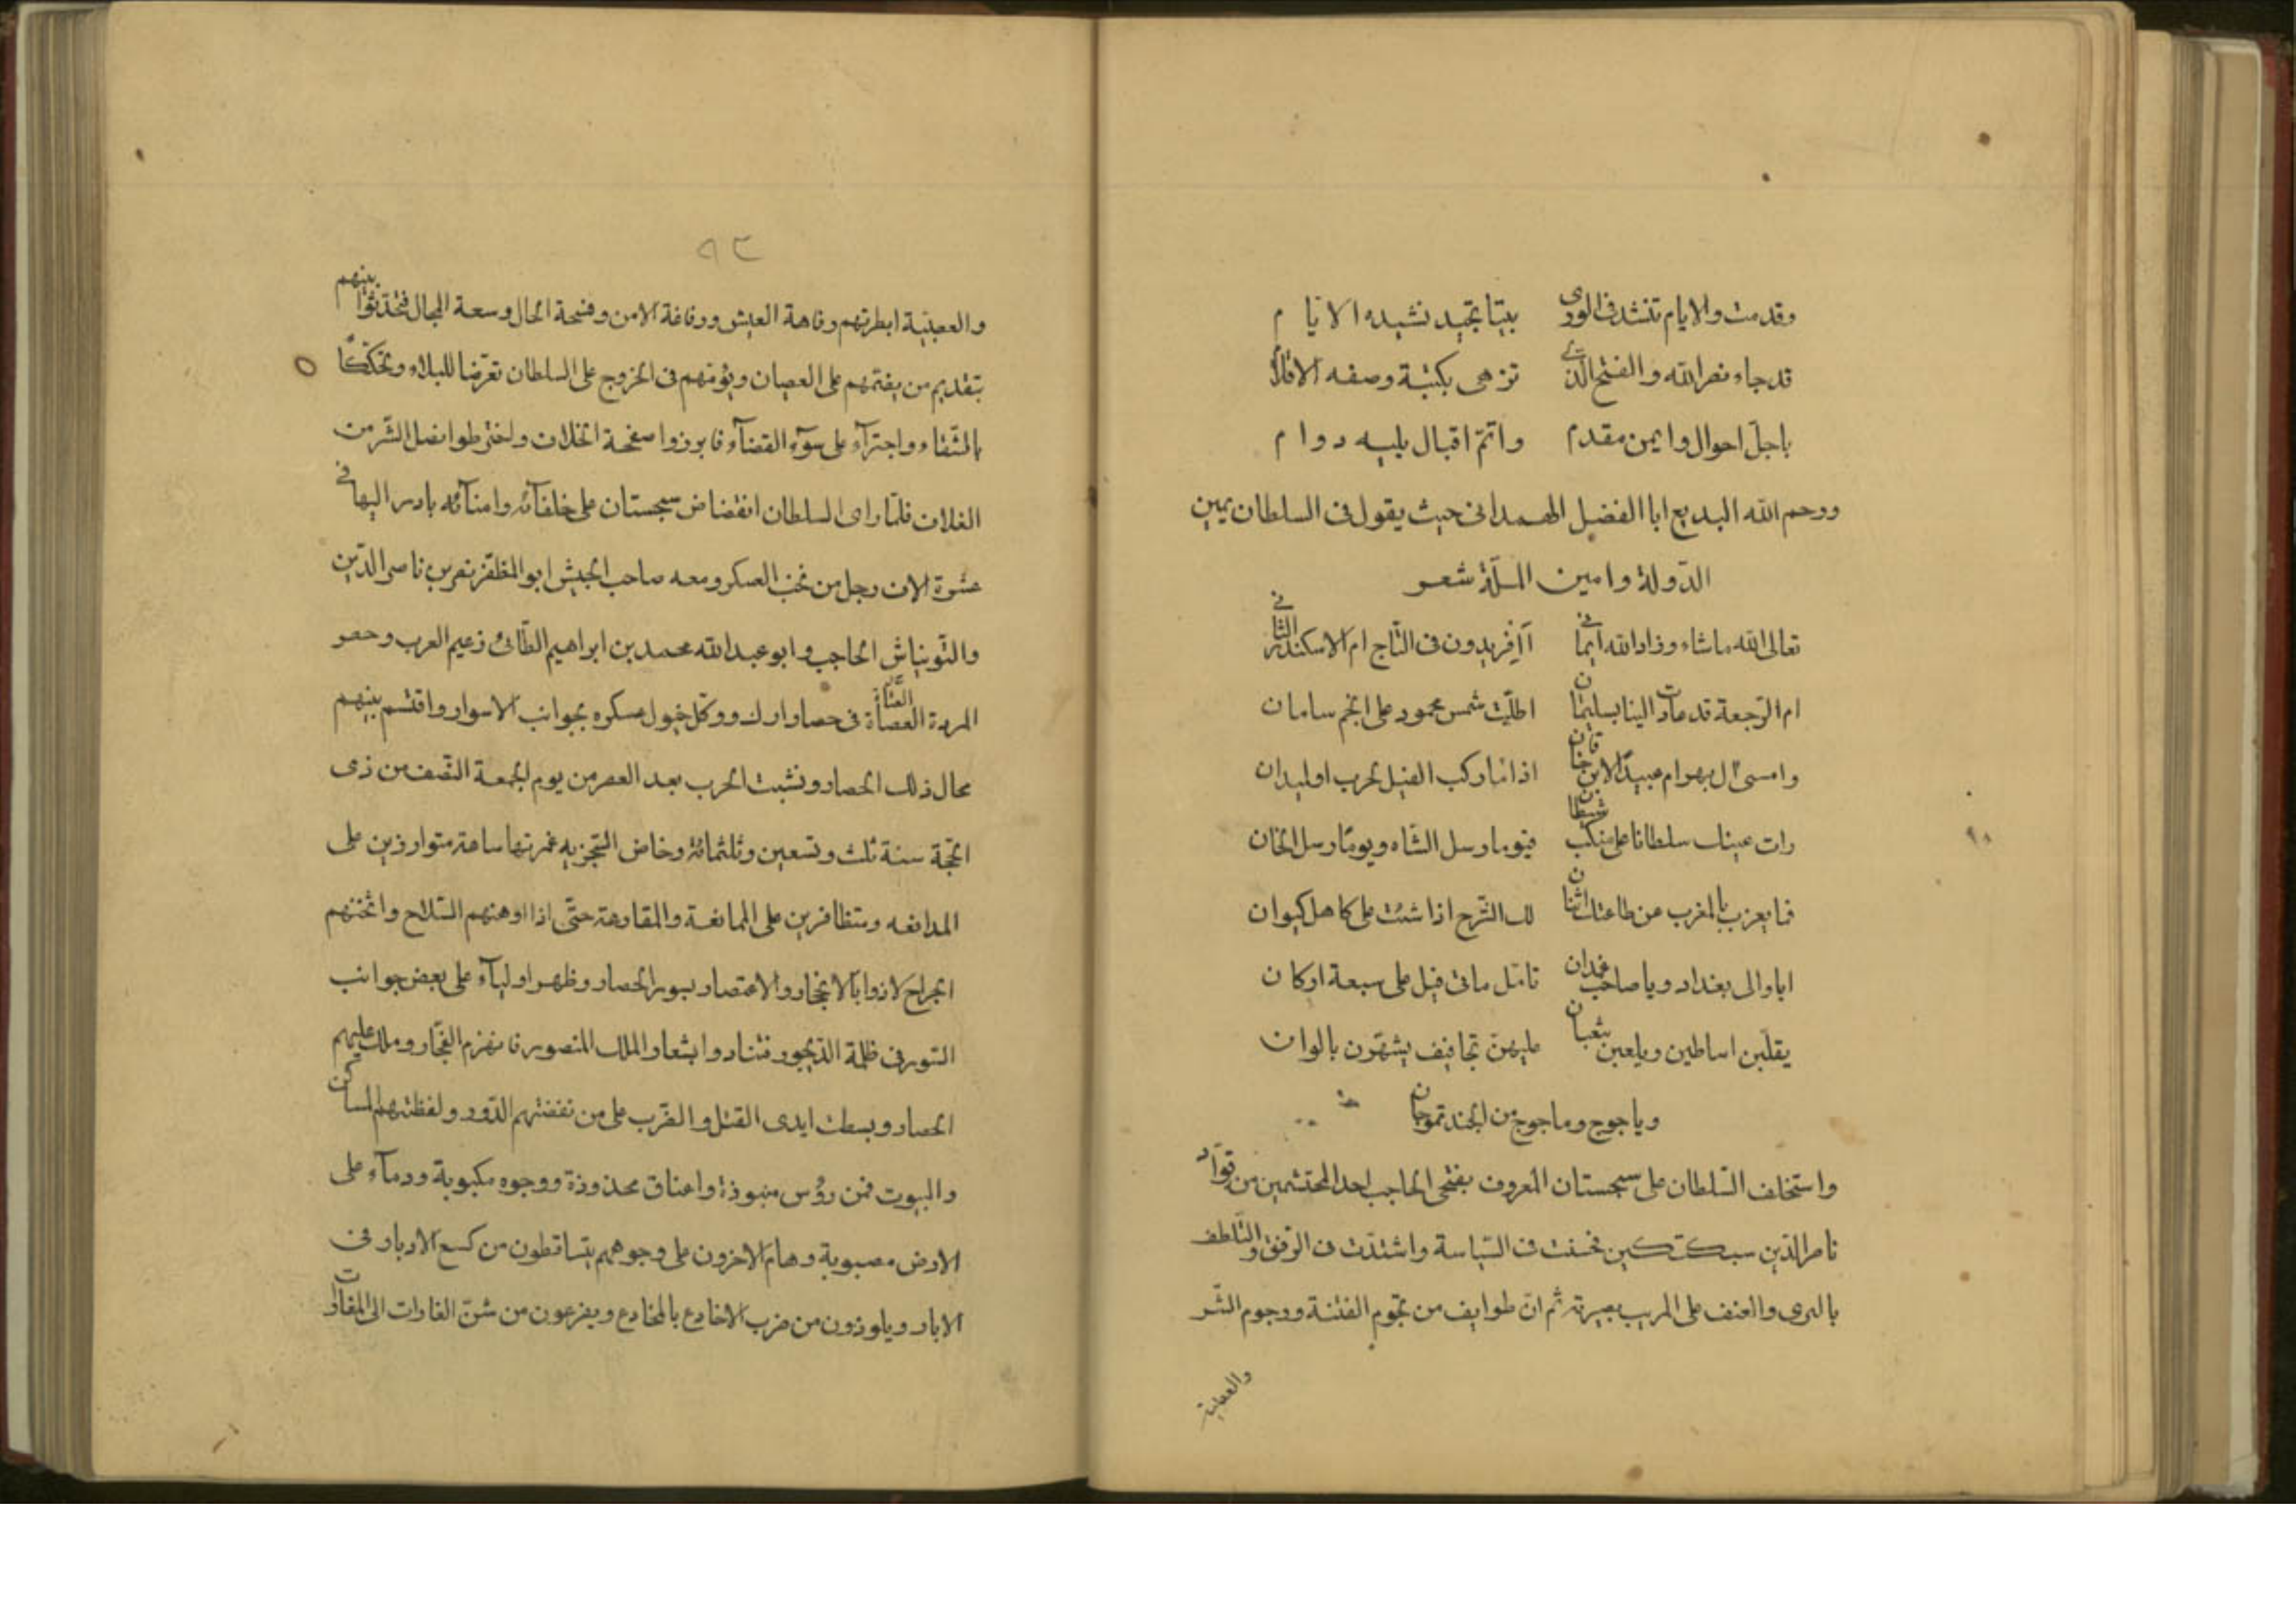 وقدمت والايام تنشد فى الورى بيتا بجيد نشيده الايام
قد جاء نصر الله والفتح الذى تزهى بكتبة وصفه الاقلام
باجلّ احوال وايمن مقدم واتمّ اقبال يليه دوام
ورحم الله البديع ابا الفضل الهمدانى حيث يقول فى السلطان يمين
الدّولة وامين الملّة شعر
تعالى الله ماشاء وزاد الله ايمانى أافريدون فى التّاج ام الاسكندر الثانى
ام الرّجعة قد عادت الينا بسليمان اطلّت شمس محمود على انجم سامان
وامسى آل بهرام عبيدًا لابن خاقان اذا ما ركب الفيل لحرب او لميدان
رات عيناك سلطانا على منكب شيطان فيوما رسل الشاه ويومًا رسل الخان
فما يعزب بالمغرب عن طاعتك اثنان لك السّرج اذا شئت على كاهل كيوان
ايا والى بغداد ويا صاحب غمدان تامّل ماتى فيل على سبعة اركان
يقلّبن اساطين ويلعبن بثعبان عليهنّ تجافيف يشهّرن بالوان
وياجوج وماجوج من الجند تموجان
واستخلف السّلطان على سجستان المعروف بفتحى الحاجب احد المحتشمين من قوّاد
ناصر الدّين سبكتكين فحسنت فى السّياسة واشتدّت فى الرفق والتّلطف
بالبرى والعنف على المريب بصيرته ثم انّ طوايف من نجوم الفتنة ورجوم الشّر
والعصبية
٩٢
والعصبيّة ابطرتهم رفاهة العيش ورفاغة الامن وفسحة الحال وسعة المجال فتحدّثوا بينهم
بتقديم من يضمّهم على العصيان ويؤمّهم فى الخروج على السلطان تعرّضا للبلاء وتحكّكًا
بالشّقاء واجترآء على سوء القضآء فابرزوا صفحة الخلاف واخترطوا نصل الشّر من
الغلاف فلمّا راى السلطان انقضاض سجستان على خلفآئه وامنآئه بادر اليها فى
عشرة الاف رجل من نخب العسكر ومعه صاحب الجيش ابو المظفّر نصر بن ناصر الدّين
والتونتاش الحاجب وابو عبد الله محمد بن ابراهيم الطّائىّ زعيم العرب وحصر
المردة العصاة فى حصار ارك ووكّل خيول عسكره بجوانب الاسوار واقتسم بينهم
محال ذلك الحصار ونشبت الحرب بعد العصر من يوم الجمعة النّصف من ذى
الحجّة سنة ثلث وتسعين وثلثمائة وخاض السّجزيه غمرتها ساعة متوارذين على
المدافعه ومتظافرين على الممانعة والمقارعة حتّى اذا اوهنهم السّلاح واثخنهم
الجراح لاذوا بالانحجار والاعتصار بسور الحصار وظهر اوليآء على بعض جوانب
السّور فى ظلمة الدّيجور فتنادوا بشعار الملك المنصور فانهزم الفجّار وملك عليهم
الحصار وبسطت ايدى القتل والضّرب على من نفضتهم الدّور ولفظتهم المساكن
والبيوت فمن رؤس منبوذة واعناق محذوذة ووجوه مكبوبة ودمآء على
الارض مصبوبة وهام الاخرون على وجوههم يتساقطون من كسع الادبار فى
الابار ويلوذون من ضرب الاخادع بالمخادع ويفزعون من شنّ الغارات الى المغارات